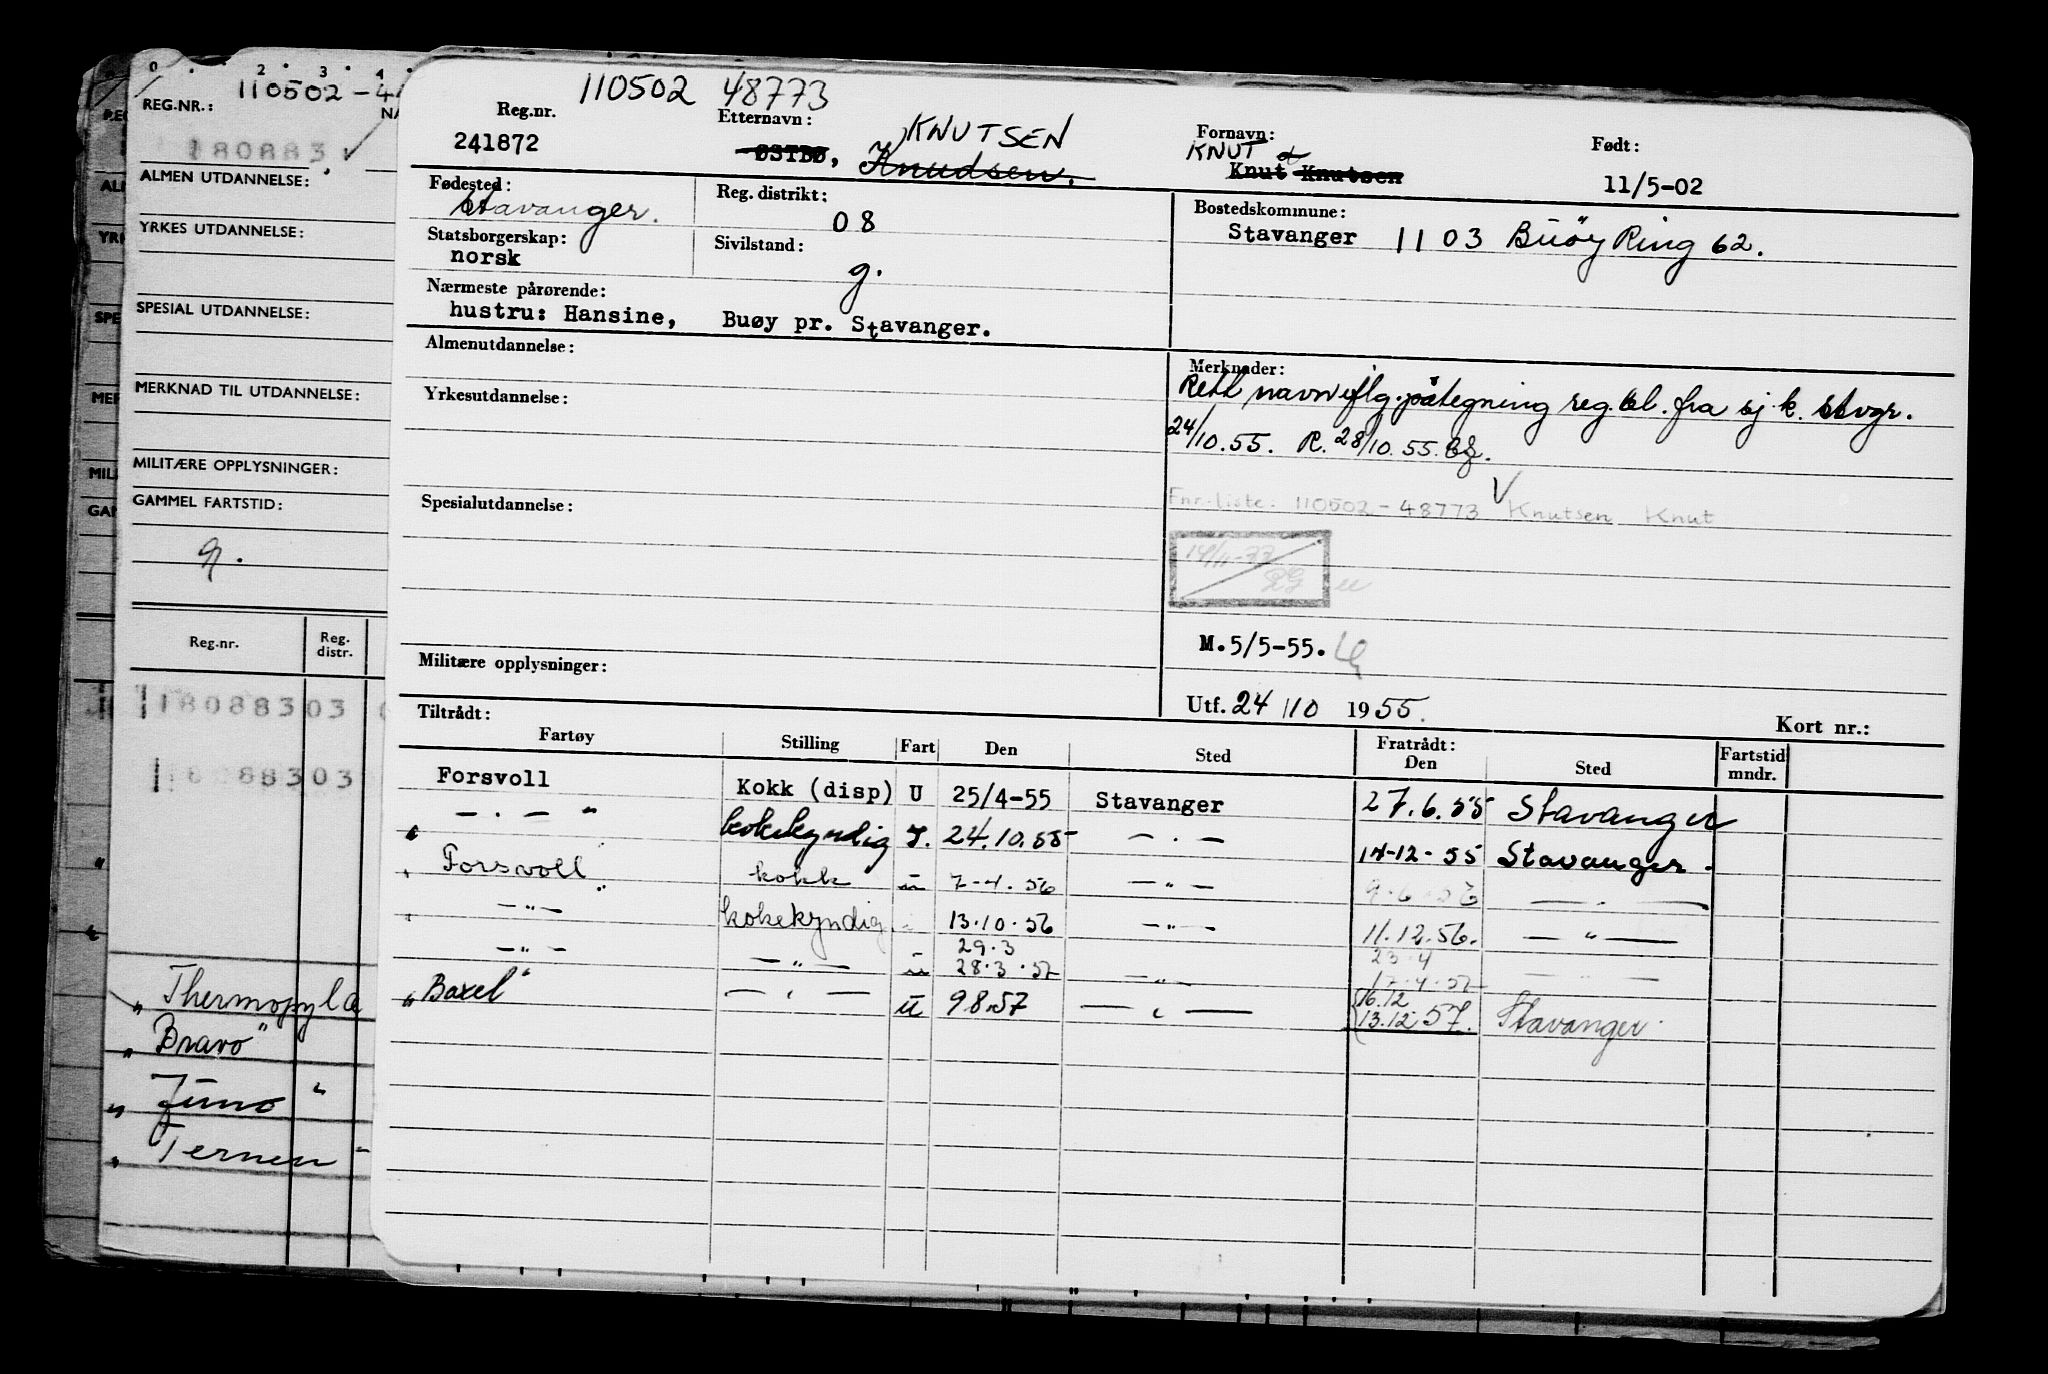 0 . 2 . 3 . 4 .
REG.NR.: 110502-4
NA
180883
ALMEN UTDANNELSE:
YRKES UTDANNELSE:
SPESIAL UTDANNELSE:
MERKNAD TIL UTDANNELSE:
MILITÆRE OPPLYSNINGER:
GAMMEL FARTSTID:
g.
Reg.nr. Reg. distr.
18088303
18088303
„Thermopylæ
„Bravo"
„Juno"
„Ternen"
110502 48773
Reg.nr. 241872
Etternavn: KNUTSEN
ØSTBØ, Knudsen.
Fornavn: KNUT
Knut Knutsen
Født: 11/5-02
Fødested: Stavanger.
Reg. distrikt: 08
Bostedskommune:
Stavanger 1103 Buøy Ring 62.
Statsborgerskap: norsk
Sivilstand: g.
Nærmeste pårørende:
hustru: Hansine, Buøy pr. Stavanger.
Almenutdannelse:
Yrkesutdannelse:
Spesialutdannelse:
Militære opplysninger:
Merknader:
Rett navn iflg. påtegning reg.bl. fra sj.k. Stvgr.
24/10.55. R. 28/10.55.
Fnr.liste: 110502-48773 Knutsen Knut
M.5/5-55.
Utf. 24/10 1955.
Kort nr.:
Tiltrådt:
Fartøy Stilling Fart Den Sted Fratrådt: Den Sted Fartstid mndr.
Forsvoll Kokk (disp) U 25/4-55 Stavanger 27.6.55 Stavanger
— . — " kokekyndig 24.10.55 — . — 14-12-55 Stavanger.
" Forsvoll " kokk u 7-4.56 — " — — . —
" — " — kokekyndig 13.10.56 — " — 11.12.56. — " —
— " — — " — u 29.3 28.3.57 — " — 23.4 17.4.57 — " —
„Boxel" — " — u 9.8.57 — " — 16.12 13.12 57. Stavanger.